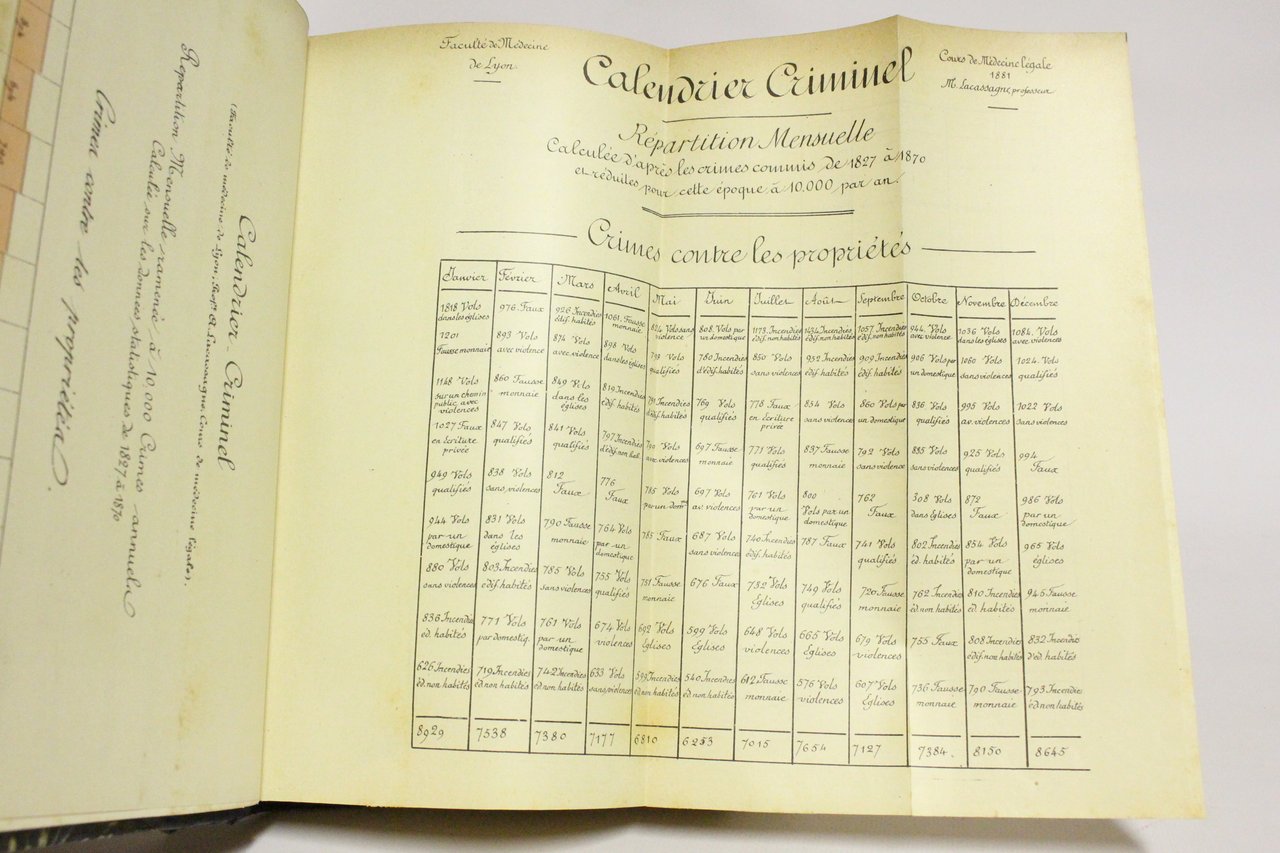 Calendrier Criminel
(Faculté de médecine de Lyon, Profr A. Lacassagne, Cours de médecine légale).
Répartition Mensuelle ramenée à 10,000 Crimes annuels
Calculée sur les données statistiques de 1827 à 1870
Crimes contre les propriétés.
Faculté de Médecine
de Lyon.
Calendrier Criminel
Cours de Médecine légale
1881
M. Lacassagne, professeur
Répartition Mensuelle
Calculée d'après les crimes commis de 1827 à 1870
et réduites pour cette époque à 10.000 par an.
Crimes contre les propriétés
Janvier
1818 Vols
dans les églises
1201
Fausse monnaie
1148 Vols
sur un chemin
public avec
violences
1027 Faux
en Ecriture
privée
949 Vols
qualifiés
944 Vols
par un
domestique
880 Vols
sans violences
836 Incendies
éd. habités
626 Incendies
éd. non habités
8929
Février
976 Faux
893 Vols
avec violence
860 Fausse
monnaie
847 Vols
qualifiés
838 Vols
sans violences
831 Vols
dans les
églises
803 Incendies
édif. habités
771 Vols
par domestiq.
719 Incendies
éd. non habités
7538
Mars
926 Incendies
édif. habités
874 Vols
avec violence
849 Vols
dans les
églises
841 Vols
qualifiés
812
Faux
790 Fausse
monnaie
785 Vols
sans violences
761 Vols
par un
domestique
742 Incendies
éd. non habités
7380
Avril
1061 Fausse
monnaie
898 Vols
dans les églises
819 Incendies
édif. habités
797 Incendies
d'édif. non hab.
776
Faux
764 Vols
par un
domestique
755 Vols
qualifiés
674 Vols
violences
633 Vols
sans violences
7177
Mai
824 Vols sans
violence
799 Vols
qualifiés
791 Incendies
d'édif. habités
790 Vols
avec violences
785 Vols
par un dom.
785 Faux
751 Fausse
monnaie
692 Vols
Eglises
593 Incendies
éd. non habités
6810
Juin
808 Vols par
un domestique
780 Incendies
d'édif. habités
769 Vols
qualifiés
697 Fausse
monnaie
697 Vols
av. violences
687 Vols
sans violences
676 Faux
599 Vols
Eglises
540 Incendies
éd. non habités
6253
Juillet
1173 Incendies
édif. non habités
850 Vols
sans violences
778 Faux
en Ecriture
privée
771 Vols
qualifiés
761 Vols
par un
domestique
740 Incendies
édif. habités
732 Vols
Eglises
648 Vols
violences
612 Fausse
monnaie
7015
Août
1434 Incendies
édif. non habités
932 Incendies
édif. habités
854 Vols
sans violences
837 Fausse
monnaie
800
Vols par un
domestique
787 Faux
749 Vols
qualifiés
665 Vols
Eglises
576 Vols
violences
7654
Septembre
1057 Incendies
édif. non habités
909 Incendies
édif. habités
860 Vols par
un domestique
792 Vols
sans violence
762
Faux
741 Vols
qualifiés
720 Fausse
monnaie
679 Vols
violences
607 Vols
Eglises
7127
Octobre
944 Vols
avec violence
906 Vols par
un domestique
836 Vols
qualifiés
885 Vols
sans violences
308 Vols
dans Eglises
802 Incendies
éd. habités
762 Incendies
éd. non habités
755 Faux
736 Fausse
monnaie
7384.
Novembre
1036 Vols
dans les églises
1060 Vols
sans violences
995 Vols
av. violences
925 Vols
qualifiés
872
Faux
854 Vols
par un
domestique
810 Incendies
éd. habités
808 Incendies
édif. non habités
790 Fausse
monnaie
8150
Décembre
1084 Vols
avec violences
1024 Vols
qualifiés
1022 Vols
sans violences
994
Faux
986 Vols
par un
domestique
965 Vols
églises
946 Fausse
monnaie
832 Incendie
d'éd. habités
793 Incendie
éd. non habités
8645